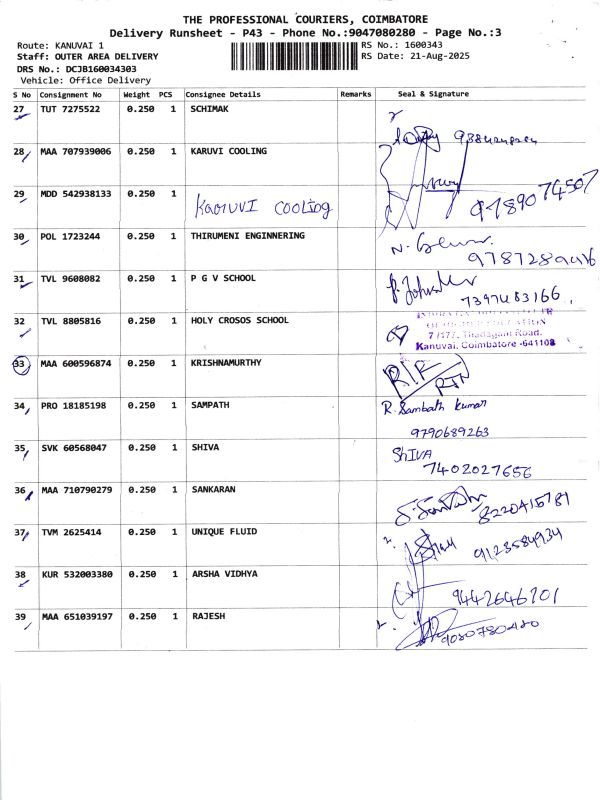 THE PROFESSIONAL COURIERS, COIMBATORE
Delivery Runsheet - P43 - Phone No.:9047080280 - Page No.:3
Route: KANUVAI 1
RS No.: 1600343
Staff: OUTER AREA DELIVERY
RS Date: 21-Aug-2025
DRS No.: DCJB160034303
Vehicle: Office Delivery
S No Consignment No Weight PCS Consignee Details Remarks Seal & Signature
27 TUT 7275522 0.250 1 SCHIMAK
28 MAA 707939006 0.250 1 KARUVI COOLING
29 MDD 542938133 0.250 1 KARUVI COOLING
30 POL 1723244 0.250 1 THIRUMENI ENGINNERING
9787289416
31 TVL 9608082 0.250 1 P G V SCHOOL
7397483166
32 TVL 8805816 0.250 1 HOLY CROSOS SCHOOL
7 /177, Thadagam Road,
Kanuvai, Coimbatore -641108
33 MAA 600596874 0.250 1 KRISHNAMURTHY
R/R
RTN
34 PRO 18185198 0.250 1 SAMPATH R. Sambath kumar
9790689263
35 SVK 60568047 0.250 1 SHIVA ShIVA
7402027656
36 MAA 710790279 0.250 1 SANKARAN
8220415781
37 TVM 2625414 0.250 1 UNIQUE FLUID
9123584934
38 KUR 532003380 0.250 1 ARSHA VIDHYA
9442646701
39 MAA 651039197 0.250 1 RAJESH
9080780480